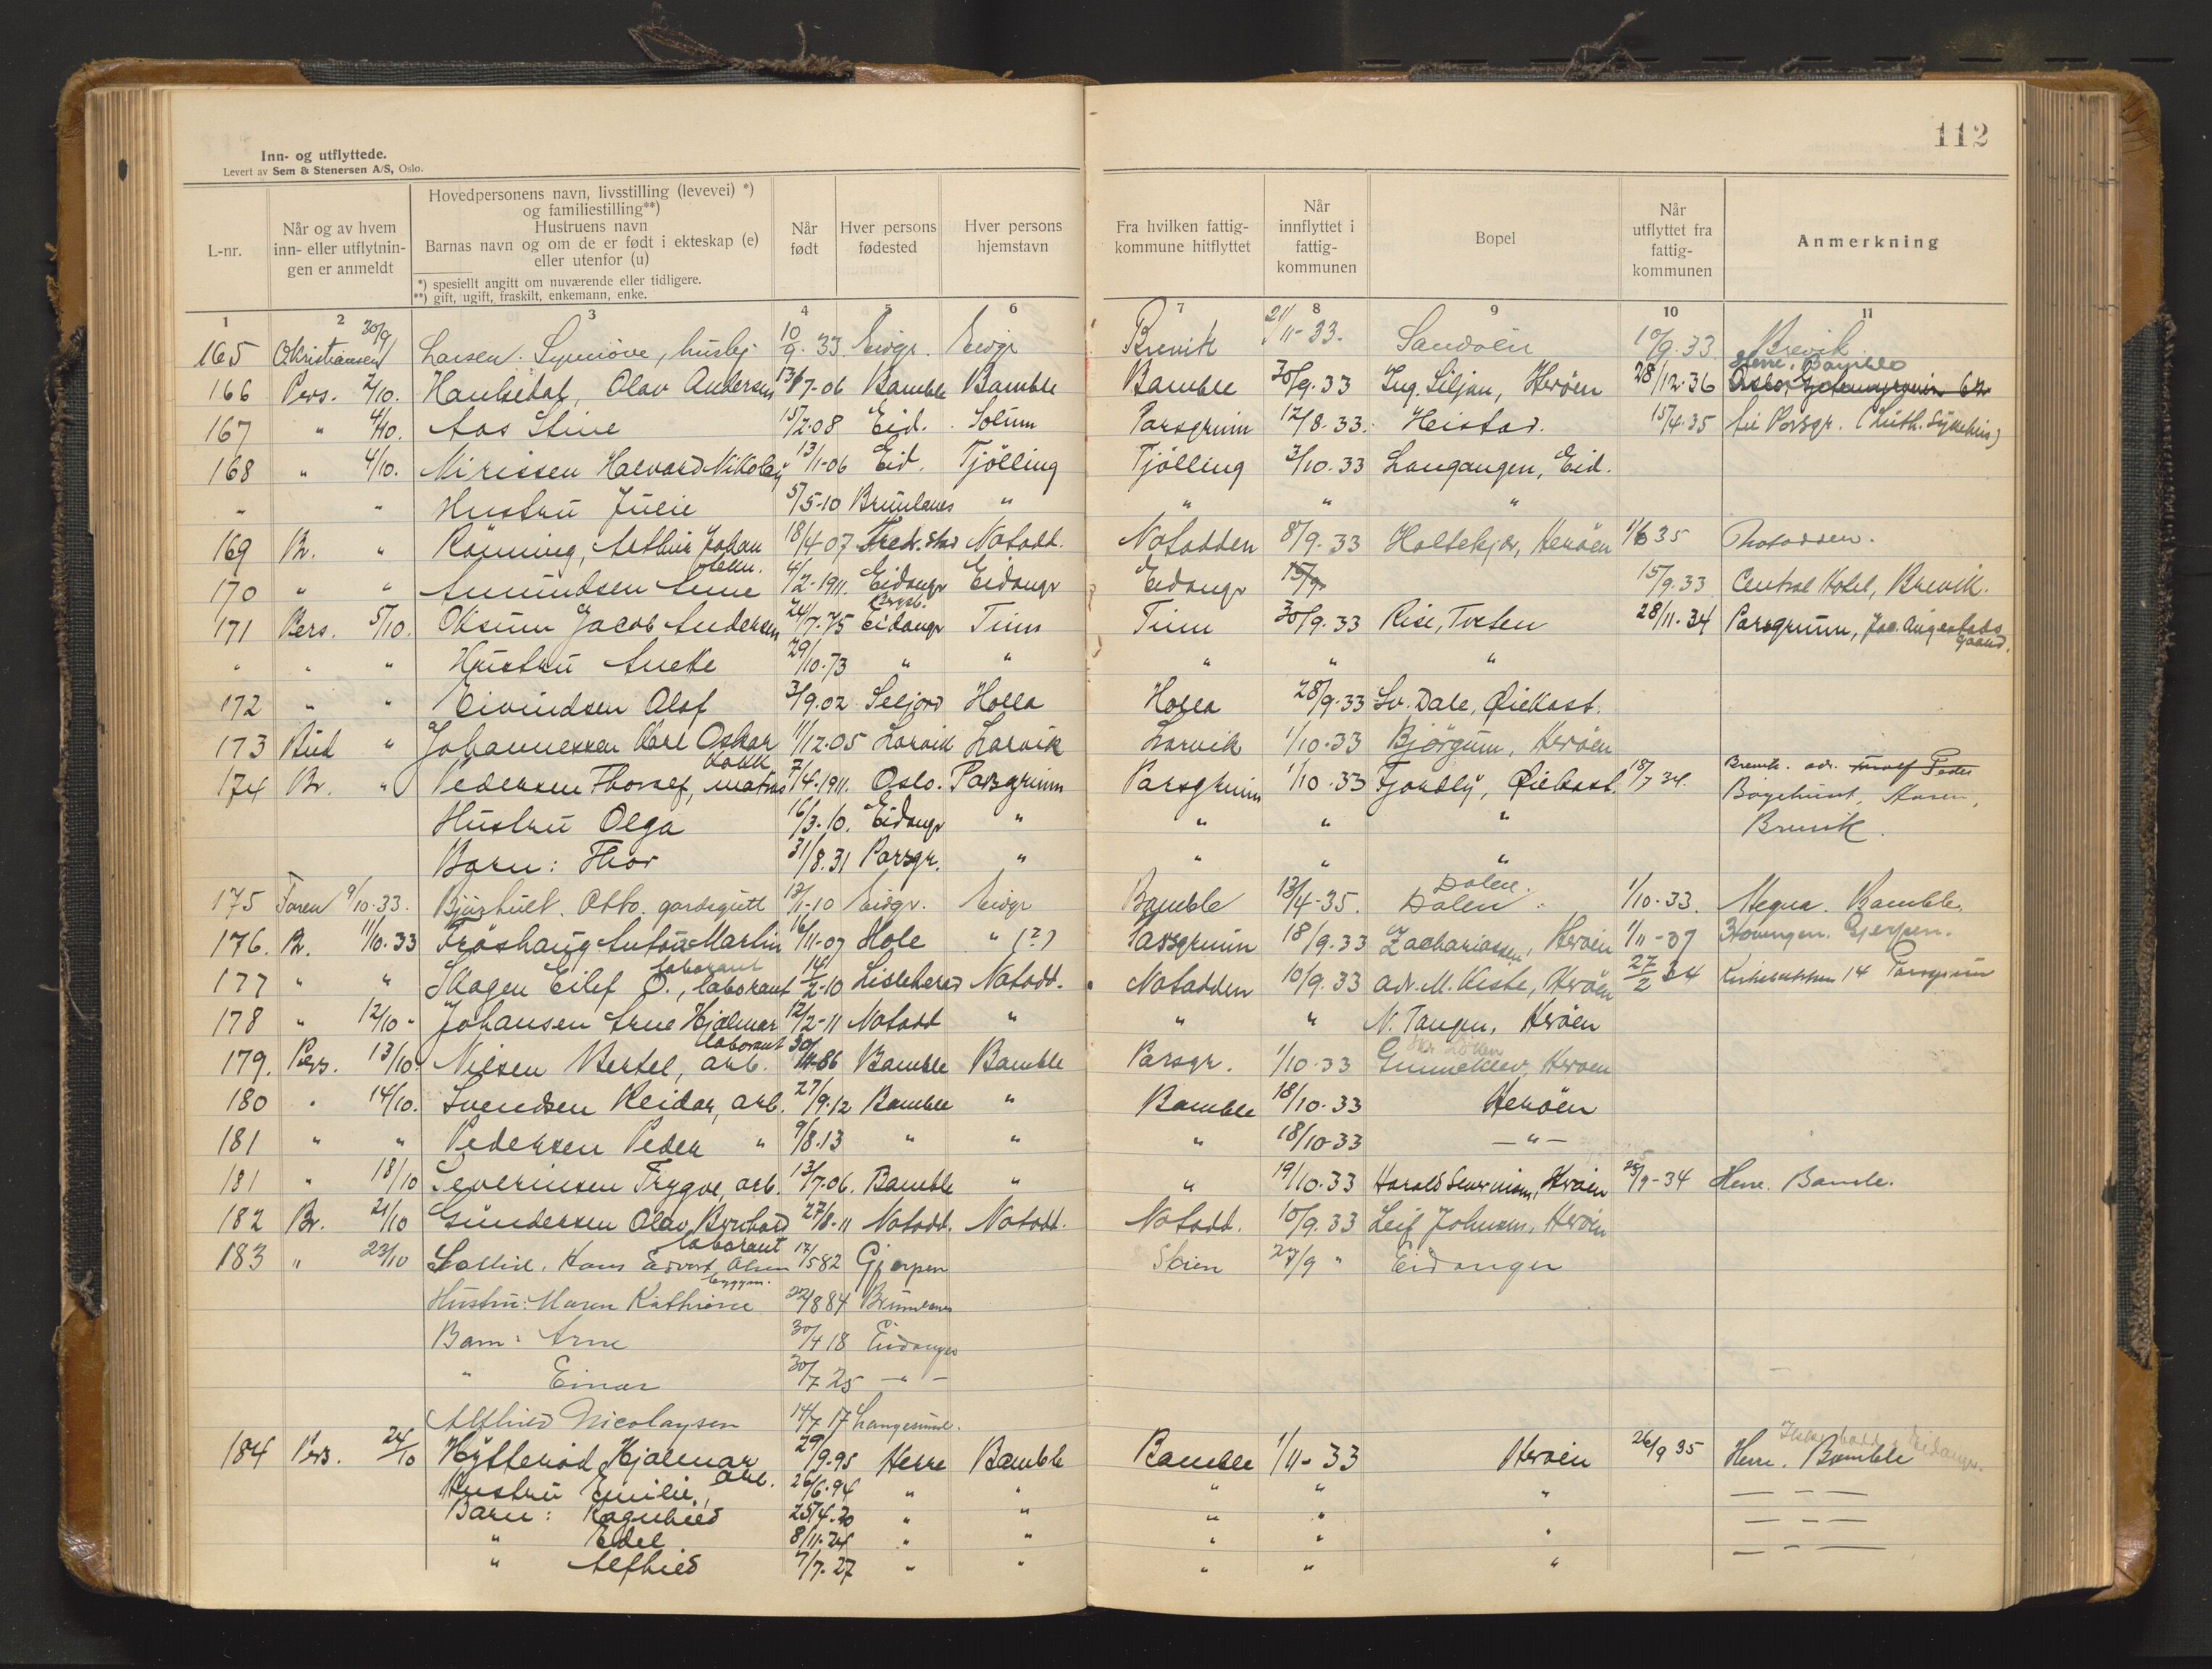 112
Inn- og utflyttede.
Levert av Sem & Stenersen A/S, Oslo.
L-nr.
Når og av hvem inn- eller utflytnin-gen er anmeldt
Hovedpersonens navn, livsstilling (levevei) *) og familiestilling**)
Hustruens navn
Barnas navn og om de er født i ekteskap (e) eller utenfor (u)
*) spesiellt angitt om nuværende eller tidligere.
**) gift, ugift, fraskilt, enkemann, enke.
Når født
Hver persons fødested
Hver persons hjemstavn
Fra hvilken fattig-kommune hitflyttet
Når innflyttet i fattig-kommunen
Bopel
Når utflyttet fra fattig-kommunen
Anmerkning
1 2 3 4 5 6 7 8 9 10 11
165 Christiansen 30/9 Larsen. Synnöve, huslej. 10/9.33 Eidgr. Eidgr Brevik 21/11-33. Sandöen 10/9.33 Brevik
166 Pers. 2/10. Olav Andersen 13/7-06 Bamble Bamble Bamble 30/9.33 Ing. Siljan, Heröen 28/12.36 Herre. Bamble
167 " 4/10. Aas Stine 15/2.08 Eid. Solum Porsgrunn 12/8.33. Heistad. 15/4.35 til Porsgr. (Luth. Sykehus)
168 " 4/10. Nirissen Halvard Nikolay 13/1-06 Eid. Tjölling Tjölling 3/10.33 Langangen, Eid.
" " Hustru Julie 5/5-10 Brunlanes " " " "
169 Br. " Rönning, Arthur Johan 18/4-07 Fredr.stad Notodd. Notodden 8/9.33 Holtekjær, Heröen 1/6 35 Notodden.
170 " " Amundsen Anne 4/2-1911. Eidangr Eidangr Eidangr 15/9 15/9.33 Central Hotel, Brevik.
171 Pers. 5/10. Oksum Jacob Andersen 24/7.75 Eidangr Tinn Tinn 30/9.33 Rise, Tveten 28/11.34 Porsgrunn,
" " " Hustru Anette 29/10.73 " " " " "
172 " " Eivindsen Olaf 3/9.02 Seljord Holla Holla 28/9.33 Sv. Dale, Øiekast.
173 Rud " Johannessen Karl Oskar 1/12.05 Larvik Larvik Larvik 1/10.33 Björgum, Heröen
174 Br. " Pedersen Thorleif, matros 7/4-1911. Oslo. Porsgrunn Porsgrunn 1/10.33 Fjordly, Øiekast. 18/7 34. Brevik. adr.
Hustru Olga 16/3.10. Eidangr " " " "
Brevik.
Barn: Thor 31/8.31 Porsgr. " " " "
175 Foren 9/10.33. Bjuzhult. Otto. gardsgutt 13/1-10 Eidgr. Eidgr Bamble 13/4-35. Dalen 1/10.33. Bamble.
176. Br. 11/10.33 Fröshaug Anton Martin 16/11-07 Hole " (?) Porsgrunn 18/9.33 Zachariassen, Heröen 1/11-37 Gjerpen.
177 " " Skogen Eilef O., laborant 14/2-10 Lisleherad Notodd. Notodden 10/9.33 adr. M. Kiste, Heröen 27/2 34 14 Porsgrunn
178 " 12/10. Johansen Arne Hjalmar laborant 12/2-11 Notodd " " " N. Tangen, Heröen
179. Pers. 13/10. Nilsen Bertel, arb. Bamble Bamble Porsgr. 1/10.33 Gunneklev, Heröen
180 " 14/10. Svendsen Reidar, arb. 27/9.12 Bamble " Bamble 18/10.33 Heröen
181 " " Pedersen Peder " 9/8.13 " " " 18/10-33 — " —
181 " 18/10 Severinsen Trygve, arb. 13/7.06. Bamble " " 19/10.33 Harald Severinsen, Heröen 25/9-34 Herre. Bamle.
182 Br. 21/10 Gundersen Olav Bernhard laborant 27/8-11 Notodd. Notodd. Notodd. 10/9.33 Leif Johnsen, Heröen
183 " 23/10 Hans Edvard Olsen byggm. 17/5 82 Gjerpen Skien 27/9 " Eidanger
Hustru: Maren Kathrine 22/8 84 Brunlanes
Barn: Arne 30/4 18 Eidanger
" Einar 30/7 25 — " —
Alfhild Nicolaysen 14/7 17 Langesund.
184 Pers. 24/10 Hytterød Hjalmar arb. 29/9.95 Herre Bamble Bamble 1/11-33 Heröen 26/9 35 Herre. Bamble
Hustru Emilie, 26/6.94 " " " " " — — —
Barn: Ragnhild 25/4.20 " " " " — — —
" Edel 8/11.24 " " " " "
" Alfhild 7/7.27 " " " " " — — —